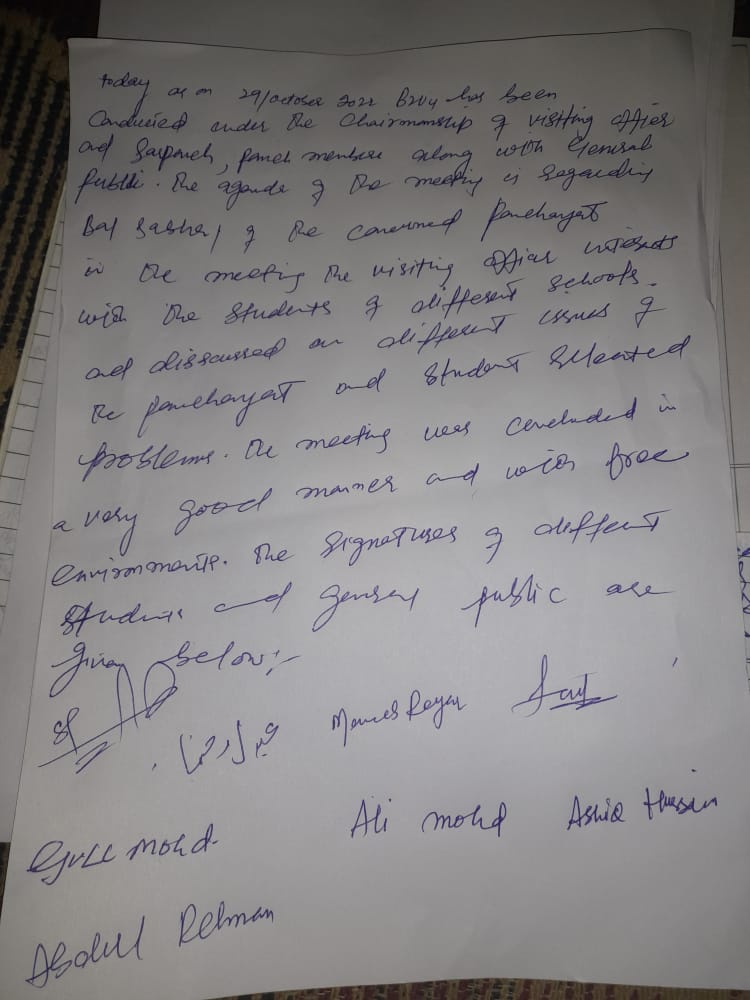 today as on 29/October 2022 B2V4 has been
Conducted under the Chairmanship of visiting officer
and Sarpanch, panch members along with General
Public. The agenda of the meeting is regarding
Bal Sabha of the concerned Panchayat
in the meeting the visiting officer interacts
with the students of different schools.
and disscussed on different issues of
the panchayat and student related
problems. The meeting was concluded in
a very good manner and with free
environments. The signatures of different
students and general public are
given below:-
Ali mohd Ashiq Hussain
Gull mohd.
Abdul Rehman